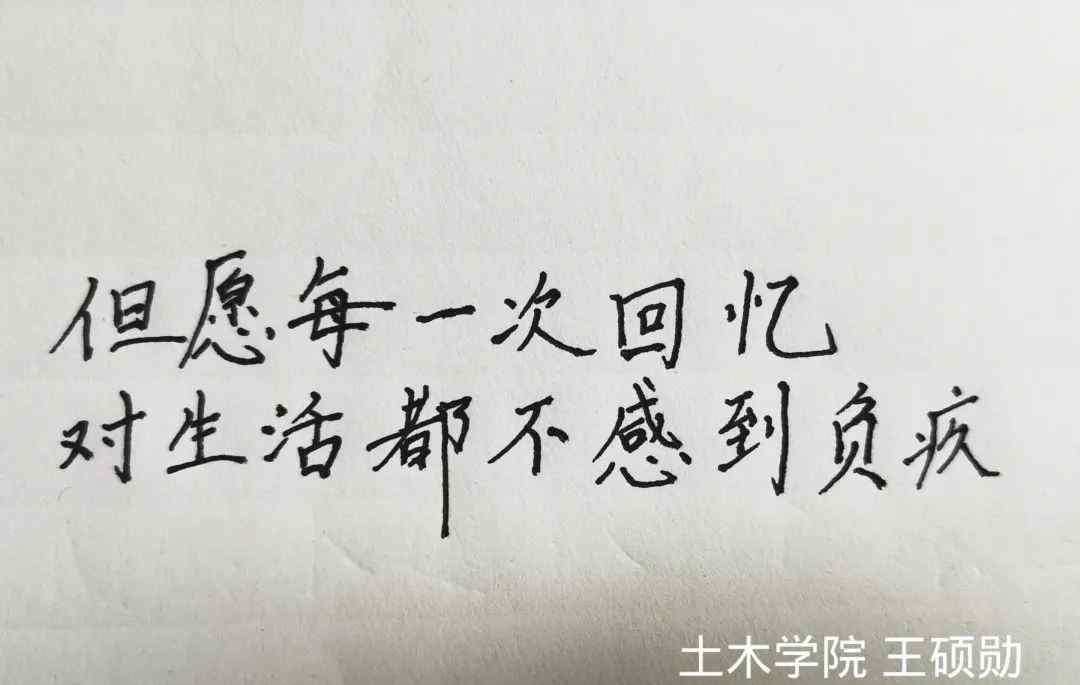 但愿每一次回忆
对生活都不感到负疚
土木学院 王硕勋